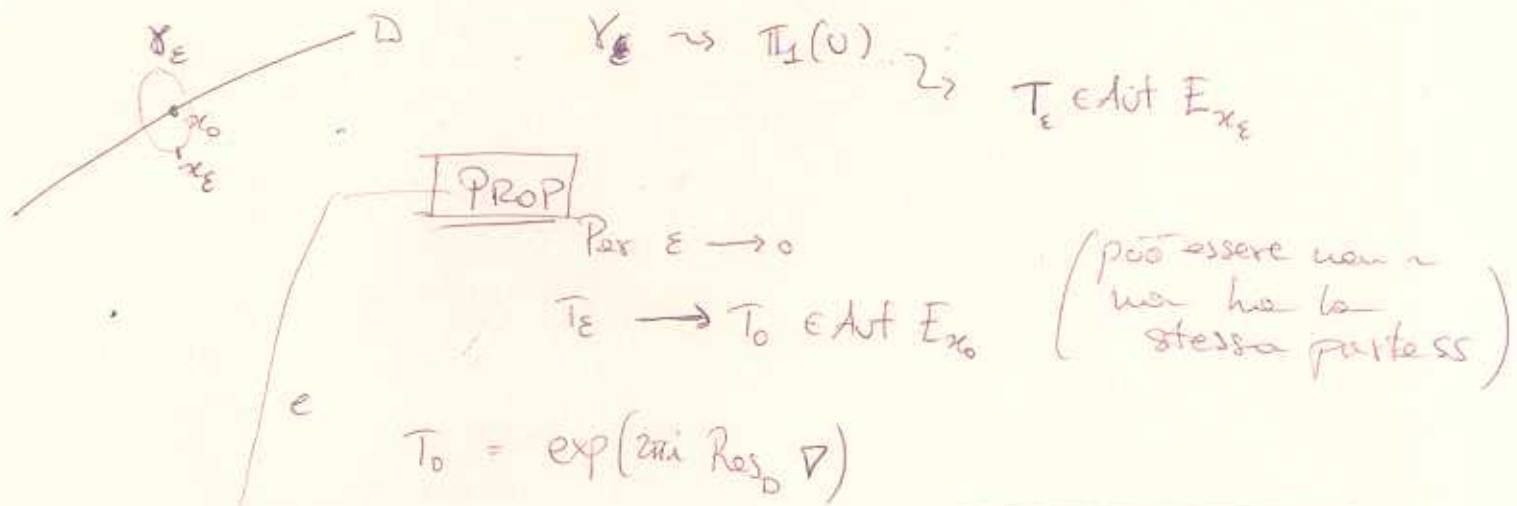 D
γ_ε
x_0
x_ε
γ_ε ⇝ π_1(U) ⇝ T_ε ∈ Aut E_{x_ε}
PROP
Per ε → 0
T_ε → T_0 ∈ Aut E_{x_0}
(può essere non ~
ma ha la
stessa parte ss)
e
T_0 = exp(2πi Res_D ∇)